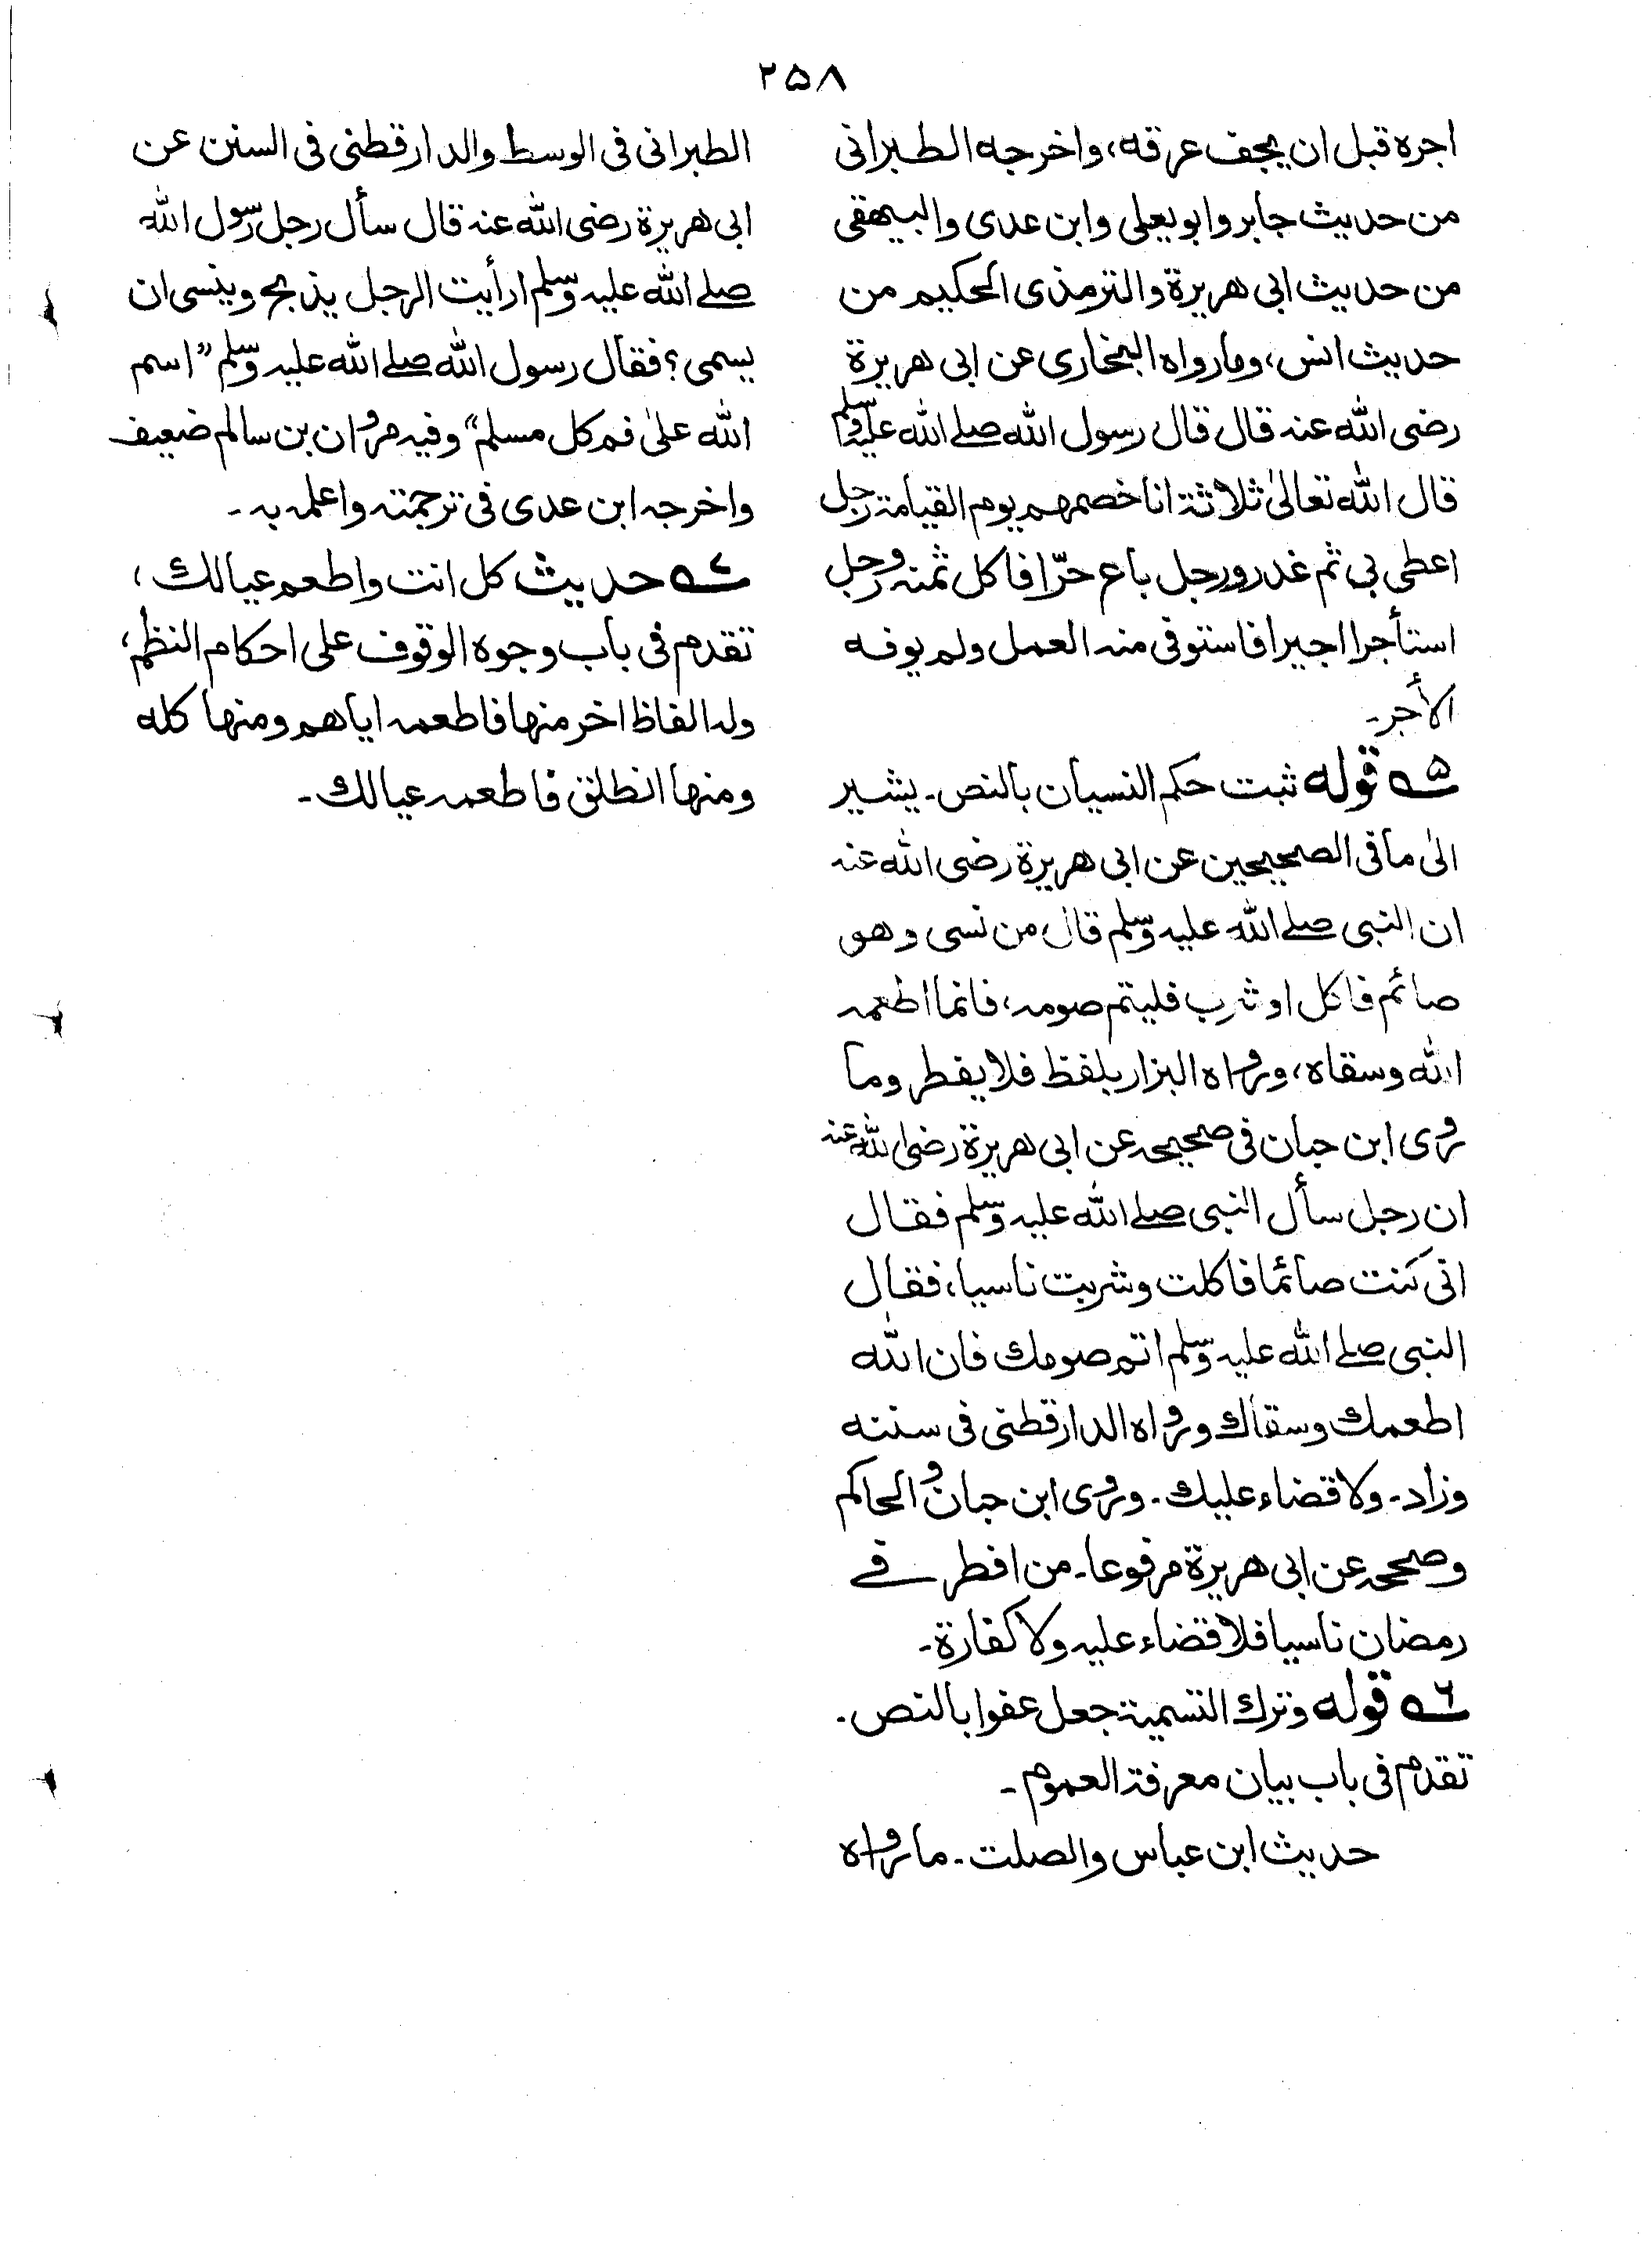 ۲۵۸
اجره قبل ان يجف عرقه، واخرجه الطبرانى
من حديث جابر وابو يعلى وابن عدى والبيهقى
من حديث ابى هريرة والترمذى الحكيم من
حديث انس، وما رواه البخارى عن ابى هريرة
رضى الله عنه قال قال رسول الله صلے الله عليه وسلم
قال الله تعالىٰ ثلاثة انا خصمهم يوم القيامة رجل
اعطى بى ثم غدر ورجل باع حرّا فاكل ثمنه ورجل
استأجر اجيرا فاستوفى منه العمل ولم يوفه
الأجر۔
۵ قوله ثبت حكم النسيان بالنص۔ يشير
الىٰ ما فى الصحيحين عن ابى هريرة رضى الله عنه
ان النبى صلے الله عليه وسلم قال من نسى وهو
صائم فاكل او شرب فليتم صومه، فانما اطعمه
الله وسقاه، ورواه البزار بلفظ فلا يفطر وما
روى ابن حبان فى صحيحه عن ابى هريرة رضى الله عنه
ان رجل سأل النبى صلے الله عليه وسلم فقال
انى كنت صائما فاكلت وشربت ناسيا، فقال
النبى صلے الله عليه وسلم اتم صومك فان الله
اطعمك وسقاك ورواه الدارقطنى فى سننه
وزاد۔ ولا قضاء عليك۔ وروى ابن حبان والحاكم
وصححه عن ابى هريرة مرفوعا۔ من افطر فے
رمضان ناسيا فلا قضاء عليه ولا كفارة۔
۶ قوله وترك التسمية جعل عفوا بالنص۔
تقدم فى باب بيان معرفة العموم۔
حديث ابن عباس والصلت۔ ما رواه
الطبرانى فى الوسط والدارقطنى فى السنن عن
ابى هريرة رضى الله عنه قال سأل رجل رسول الله
صلے الله عليه وسلم ارأيت الرجل يذبح وينسى ان
يسمى؟ فقال رسول الله صلے الله عليه وسلم ”اسم
الله علىٰ فم كل مسلم“ وفيه مروان بن سالم ضعيف
واخرجه ابن عدى فى ترجمته واعله به۔
۷ حديث كل انت واطعم عيالك،
تقدم فى باب وجوه الوقوف على احكام النظم،
وله الفاظ اخر منها فاطعمه اياهم ومنها كله
ومنها انطلق فاطعمه عيالك۔